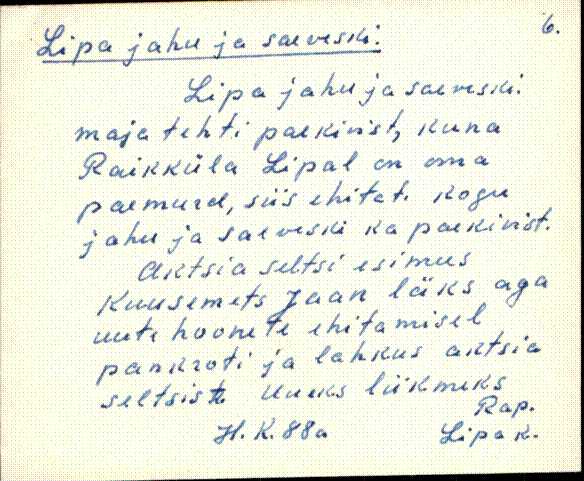 6.
Lipa jahu ja saeveski.
Lipa jahu ja saeveski
maja tehti paekivist, kuna
Raikküla Lipal on oma
paemurd, siis ehitat. kogu
jahu ja saeveski ka paekivist.
Aktsia seltsi esimus
Kuusemets Jaan läks aga
uute hoonete ehitamisel
pankroti ja lahkus aktsia
seltsist Uueks liikmeks
Rap.
H. K. 88a Lipa k.